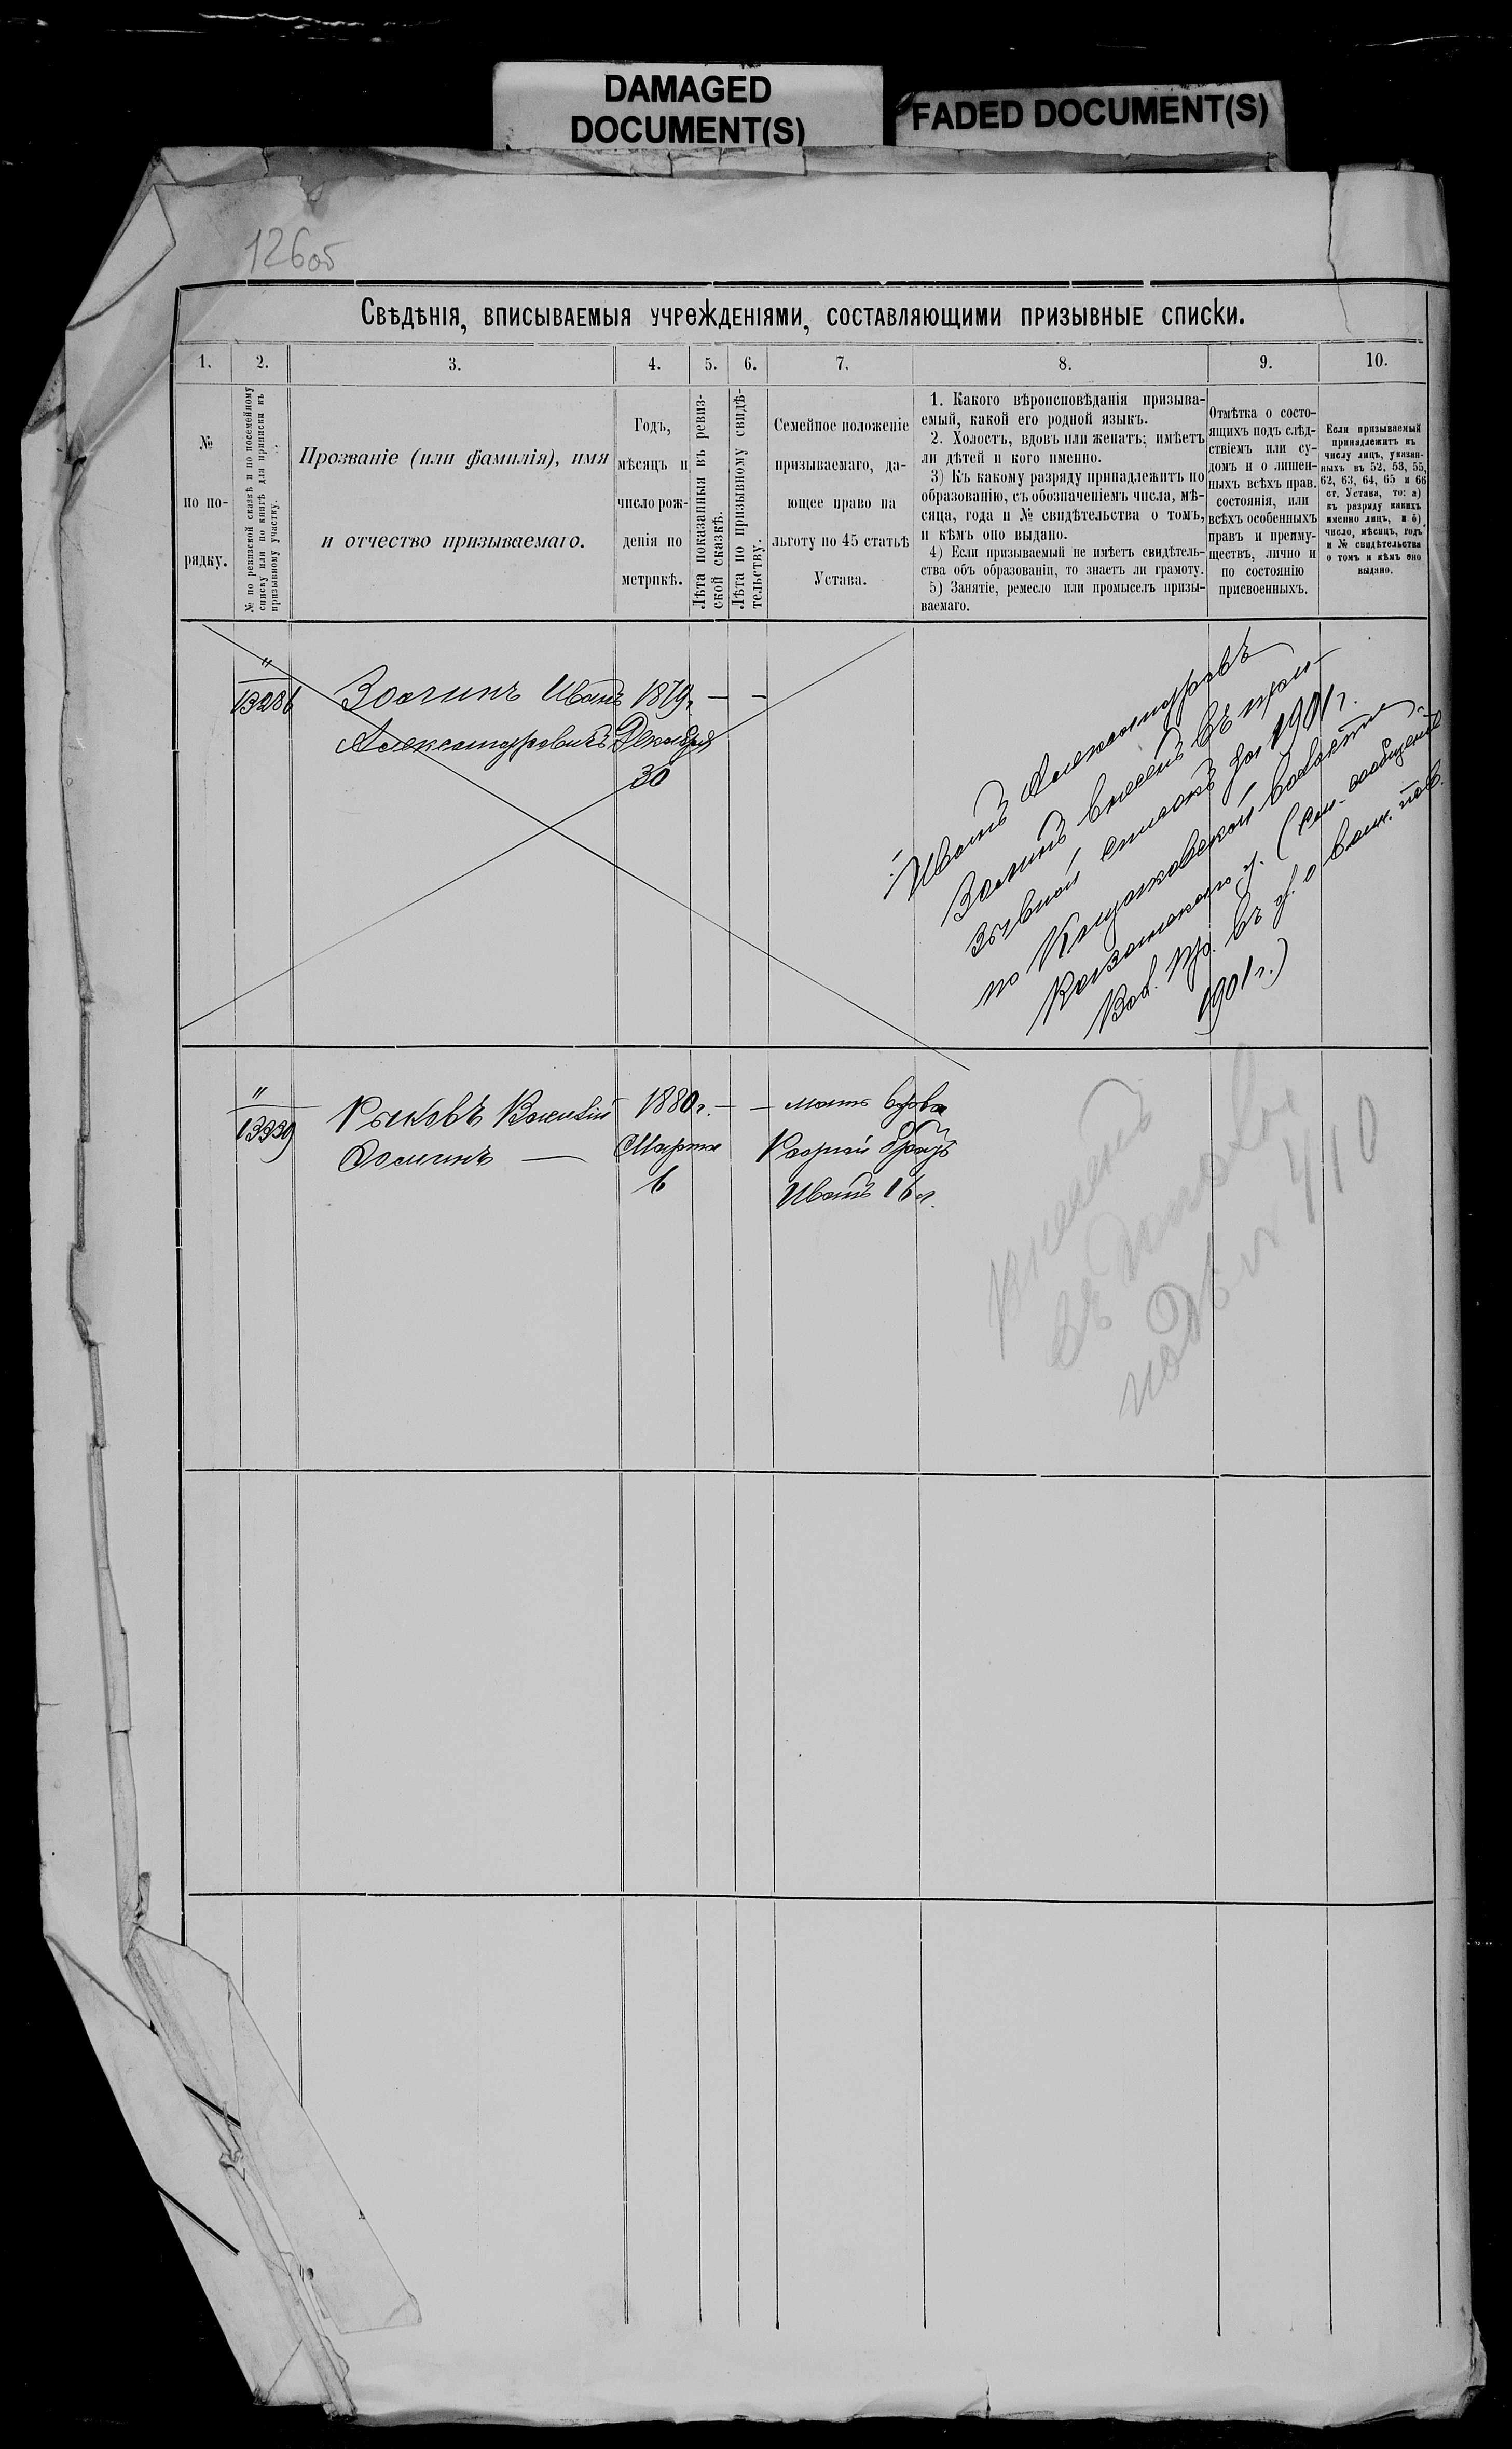 DAMAGED
DOCUMENT(S)
FADED DOCUMENT(S)
126об
Свѣдѣнія, вписываемыя учрежденіями, составляющими призывные списки.
1. 2. 3. 4. 5. 6. 7. 8. 9. 10.
№
по по-
рядку.
№ по ревизской сказкѣ и по посемейному
списку или по книгѣ для приписки къ
призывному участку.
Прозваніе (или фамилія), имя
и отчество призываемаго.
Годъ,
мѣсяцъ и
число рож-
денія по
метрикѣ.
Лѣта показанныя въ ревиз-
ской сказкѣ.
Лѣта по призывному свидѣ-
тельству.
Семейное положеніе
призываемаго, да-
ющее право на
льготу по 45 статьѣ
Устава.
1. Какого вѣроисповѣданія призыва-
емый, какой его родной языкъ.
2. Холостъ, вдовъ или женатъ; имѣетъ
ли дѣтей и кого именно.
3) Къ какому разряду принадлежитъ по
образованію, съ обозначеніемъ числа, мѣ-
сяца, года и № свидѣтельства о томъ,
и кѣмъ оно выдано.
4) Если призываемый не имѣетъ свидѣтель-
ства объ образованіи, то знаетъ ли грамоту.
5) Занятіе, ремесло или промыселъ призы-
ваемаго.
Отмѣтка о состо-
ящихъ подъ слѣд-
ствіемъ или су-
домъ и о лишен-
ныхъ всѣхъ прав.
состоянія, или
всѣхъ особенныхъ
правъ и преиму-
ществъ, лично и
по состоянію
присвоенныхъ.
Если призываемый
принадлежитъ къ
числу лицъ, указан-
ныхъ въ 52, 53, 55,
62, 63, 64, 65 и 66
ст. Устава, то: а)
къ разряду какихъ
именно лицъ, и б)
число, мѣсяцъ, годъ
и № свидѣтельства
о томъ и кѣмъ оно
выдано.
"
13286
Иванъ 1879г. — —
Александровичъ Декабря
30
Иванъ Александровъ
внесенъ въ при-
зывной списокъ за 1901 г.
по волости,
Казанскаго у. (см. сообщеніе
въ у. о воин. пов.
1901 г.)
"
13939
Рыковъ Василій 1880г. — — мать вдова
Марта Родной братъ
6 Иванъ 16 л.
внесенъ
въ
подъ № 410